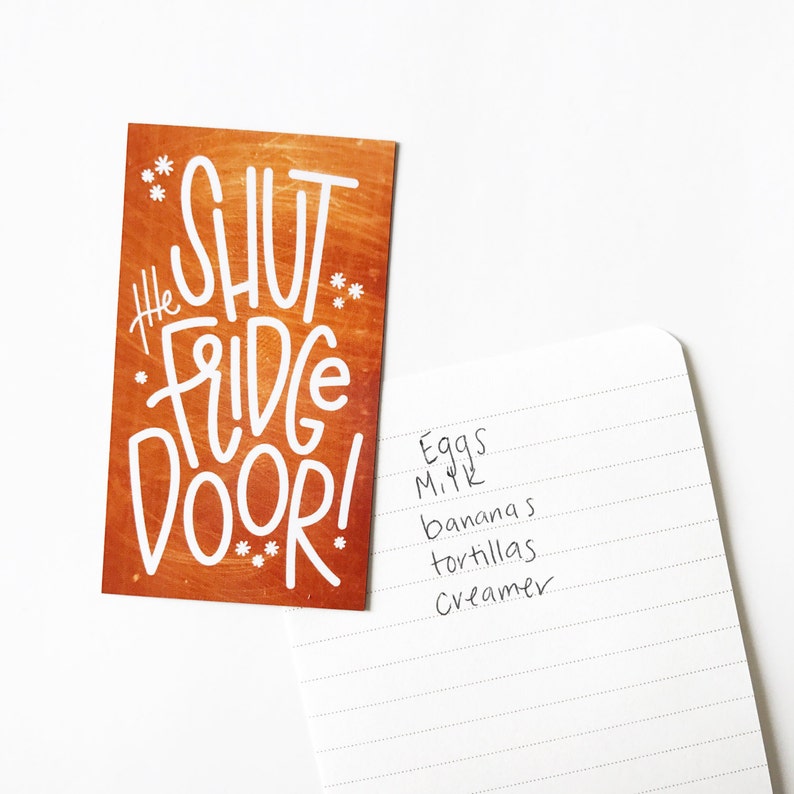 SHUT
the
FRIDGe
DOOR!
Eggs
Milk
bananas
tortillas
creamer